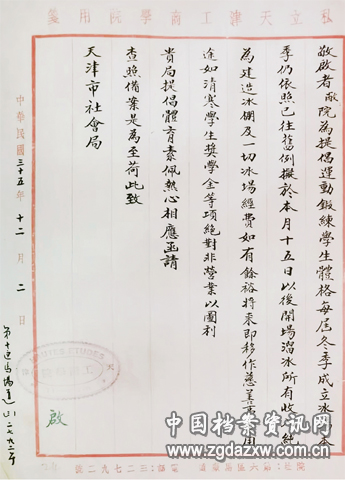 私立天津工商學院用箋
敬啟者敝院為提倡運動鍛練學生體格每屆冬季成立冰場本
季仍依照已往舊例擬於本月十五日以後開場溜冰所有收
為建造冰棚及一切冰場經費如有餘裕將來即移作慈善用
途如清寒學生獎學金等項絕對非營業以圖利
貴局提倡體育素佩熱心相應函請
查照備案是為至荷此致
天津市社會局
啟
中華民國三十五年十二月二日
中国档案资讯网
www.zgdazxw.com.cn